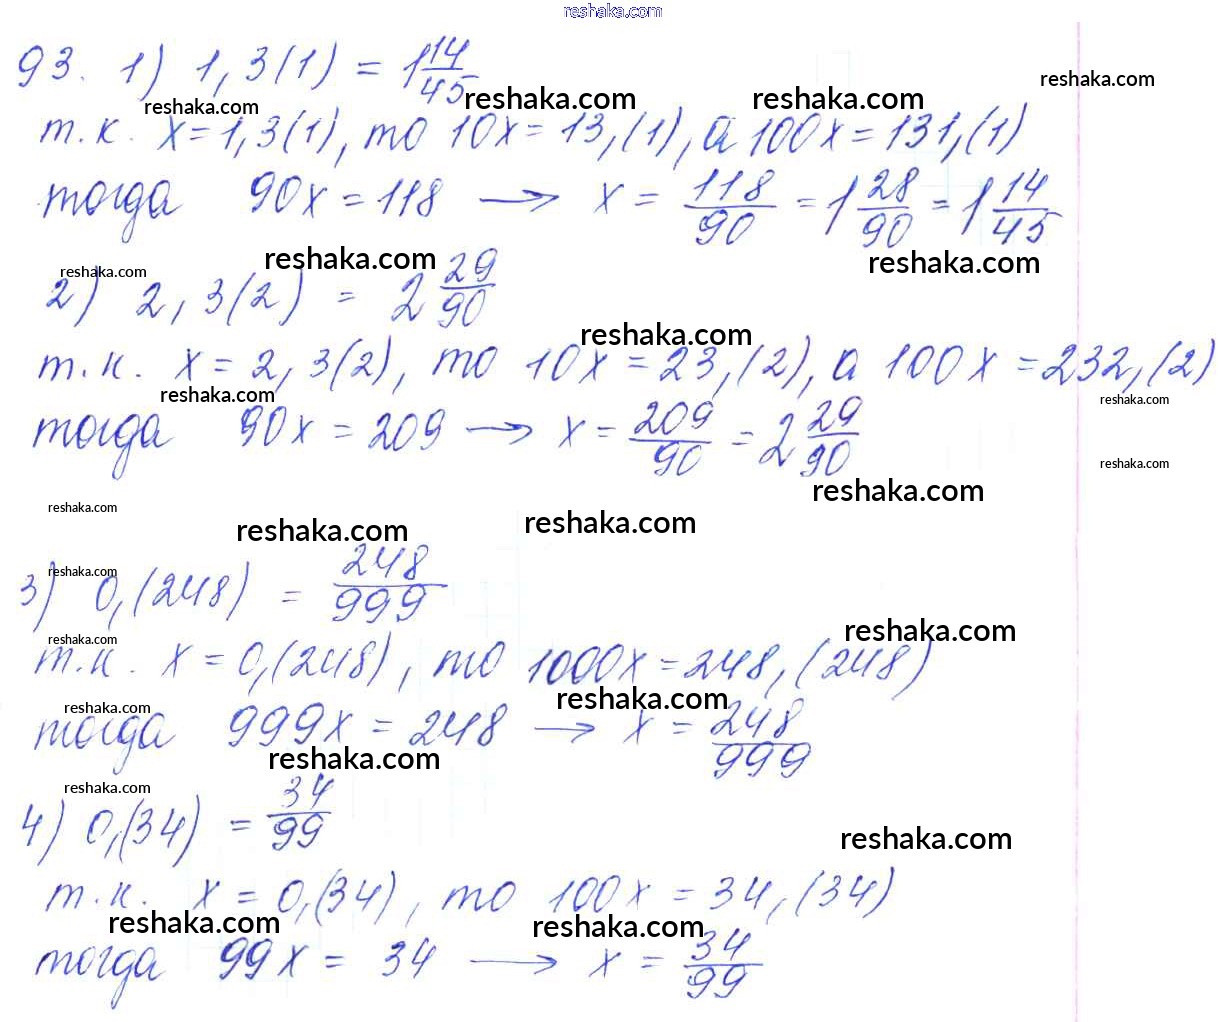 reshaka.com
93. 1) 1,3(1) = 1 14/45
reshaka.com reshaka.com reshaka.com reshaka.com
т.к. x=1,3(1), то 10x=13,(1), а 100x=131,(1)
тогда 90x=118 → x = 118/90 = 1 28/90 = 1 14/45
reshaka.com reshaka.com reshaka.com
2) 2,3(2) = 2 29/90
reshaka.com
т.к. x=2,3(2), то 10x=23,(2), а 100x=232,(2)
reshaka.com reshaka.com
тогда 90x=209 → x = 209/90 = 2 29/90
reshaka.com
reshaka.com
reshaka.com reshaka.com reshaka.com
3) 0,(248) = 248/999
reshaka.com
reshaka.com reshaka.com
т.к. x=0,(248), то 1000x=248,(248)
reshaka.com reshaka.com
тогда 999x=248 → x = 248/999
reshaka.com
reshaka.com
4) 0,(34) = 34/99
reshaka.com
т.к. x=0,(34), то 100x=34,(34)
reshaka.com reshaka.com
тогда 99x = 34 → x = 34/99